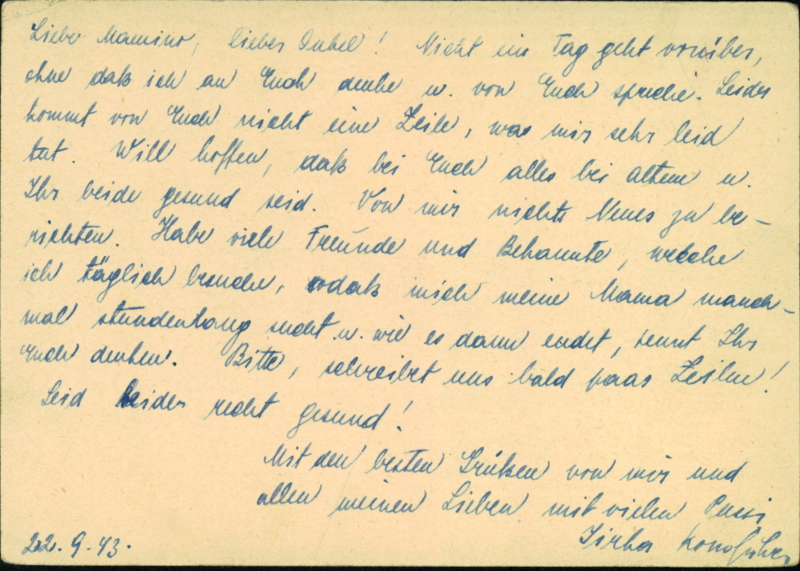 Liebe Mamino, lieber Onkel! Nicht ein Tag geht vorüber,
ohne daß ich an Euch denke u. von Euch spreche. Leider
kommt von Euch nicht eine Zeile, was mir sehr leid
tut. Will hoffen, daß bei Euch alles bei altem u.
Ihr beide gesund seid. Von mir nichts Neues zu be-
richten. Habe viele Freunde und Bekannte, welche
ich täglich besuche, sodaß mich meine Mama manch-
mal stundenlang sucht u. wie es dann endet, könnt Ihr
Euch denken. Bitte, schreibet uns bald paar Zeilen!
Seid beide recht gesund!
Mit den besten Grüßen von mir und
allen meinen Lieben mit vielen Pussi
22. 9. 43.